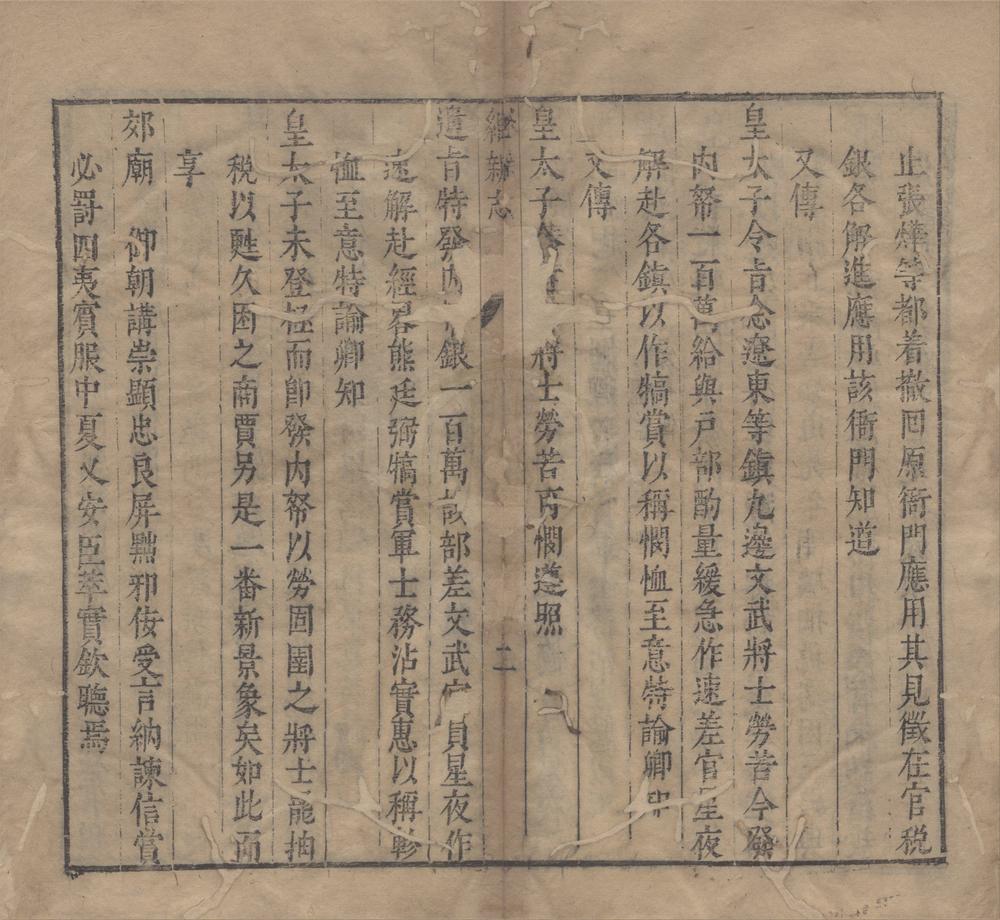 止張燁等都着撤囘原衙門應用其見徵在官稅
銀各解進應用該衙門知道
又傳
皇太子令旨念遼東等鎮九邊文武將士勞苦今發
內帑一百萬給與戶部酌量緩急作速差官星夜
解赴各鎮以作犒賞以稱憫恤至意特諭卿
又傳
皇太子 將士勞苦 憫遵照
二
遺旨特發內 銀一百萬 部差文武 員星夜作
速解赴經畧熊廷弼犒賞軍士務沾實惠以稱軫
恤至意特諭卿知
皇太子未登極而卽發內帑以勞固圉之將士罷抽
稅以甦久困之商賈另是一番新景象矣如此而
享
郊廟 御朝講崇顯忠良屏黜邪佞受言納諫信賞
必罰四夷賓服中夏乂安臣萃實欽聽焉